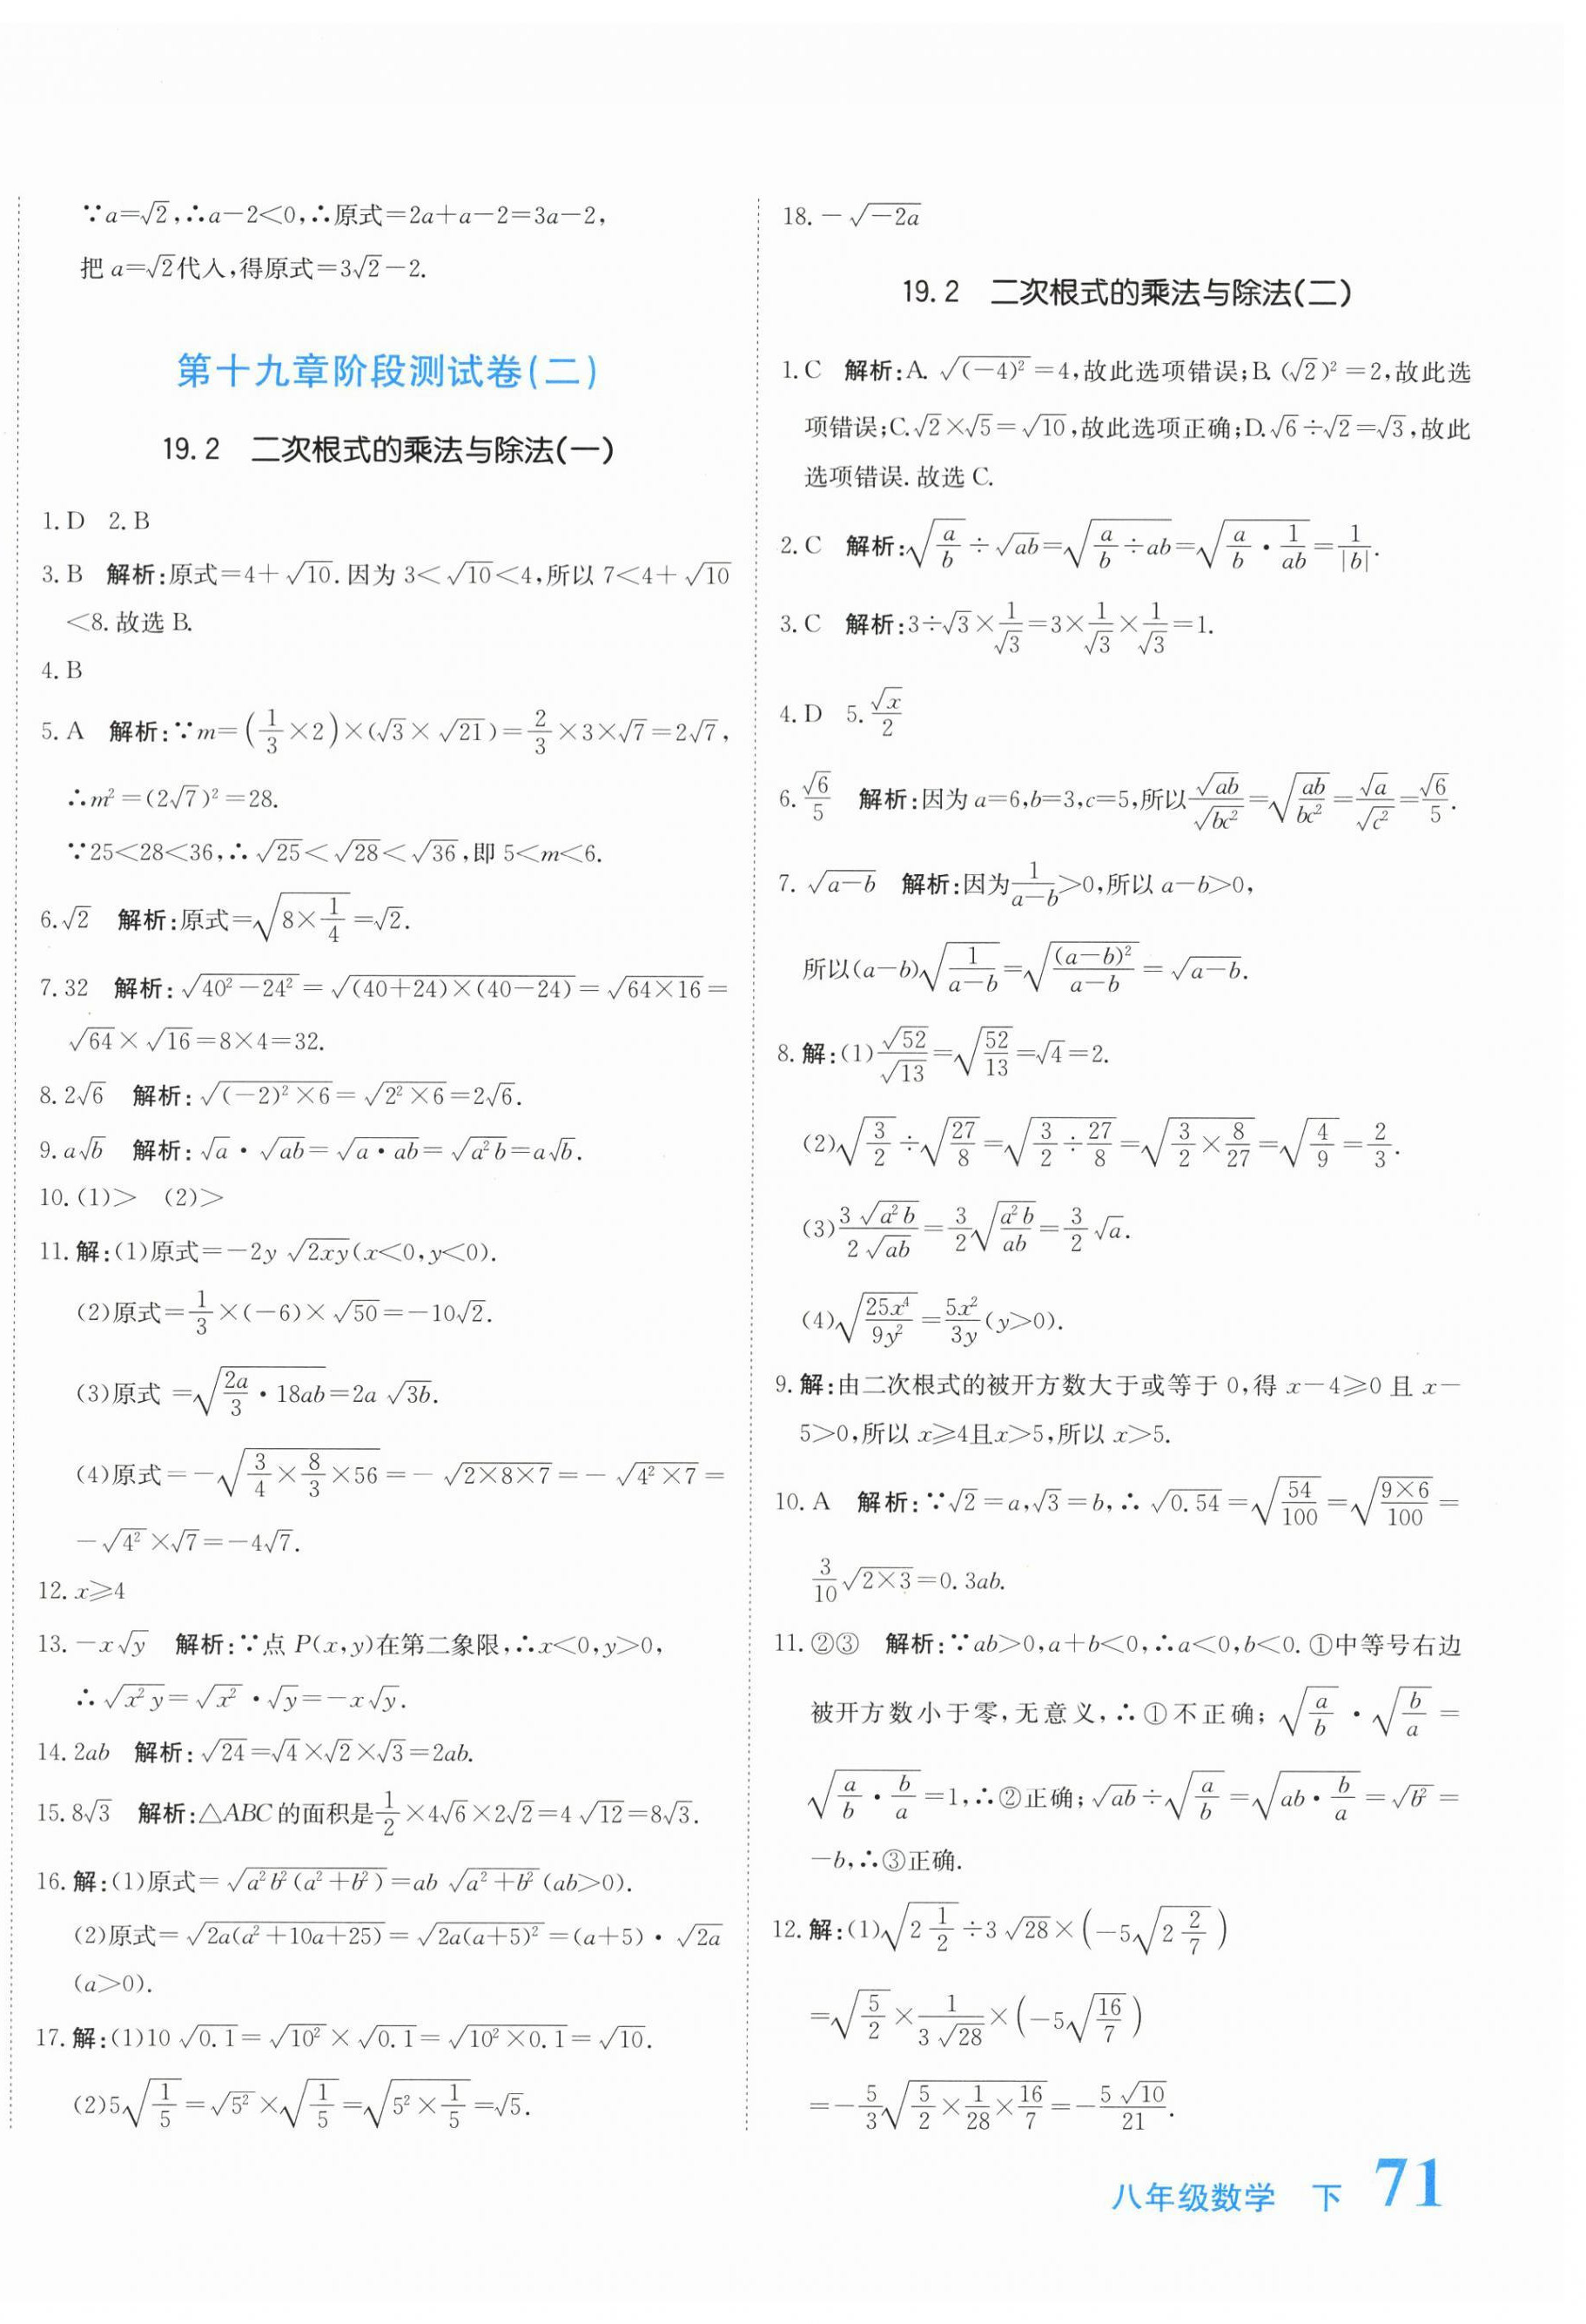 ∵a=√2,∴a-2<0,∴原式=2a+a-2=3a-2,
把a=√2代入,得原式=3√2-2.
第十九章阶段测试卷(二)
19.2 二次根式的乘法与除法(一)
1.D 2.B
3.B 解析:原式=4+√10.因为3<√10<4,所以7<4+√10
<8.故选B.
4.B
5.A 解析:∵m=(1/3×2)×(√3×√21)=2/3×3×√7=2√7,
∴m²=(2√7)²=28.
∵25<28<36,∴√25<√28<√36,即5<m<6.
6.√2 解析:原式=√(8×1/4)=√2.
7.32 解析:√(40²-24²)=√((40+24)×(40-24))=√(64×16)=
√64×√16=8×4=32.
8.2√6 解析:√((-2)²×6)=√(2²×6)=2√6.
9.a√b 解析:√a·√(ab)=√(a·ab)=√(a²b)=a√b.
10.(1)> (2)>
11.解:(1)原式=-2y√(2xy)(x<0,y<0).
(2)原式=1/3×(-6)×√50=-10√2.
(3)原式=√(2a/3·18ab)=2a√(3b).
(4)原式=-√(3/4×8/3×56)=-√(2×8×7)=-√(4²×7)=
-√(4²)×√7=-4√7.
12.x≥4
13.-x√y 解析:∵点P(x,y)在第二象限,∴x<0,y>0,
∴√(x²y)=√(x²)·√y=-x√y.
14.2ab 解析:√24=√4×√2×√3=2ab.
15.8√3 解析:△ABC的面积是1/2×4√6×2√2=4√12=8√3.
16.解:(1)原式=√(a²b²(a²+b²))=ab√(a²+b²)(ab>0).
(2)原式=√(2a(a²+10a+25))=√(2a(a+5)²)=(a+5)·√(2a)
(a>0).
17.解:(1)10√0.1=√(10²)×√0.1=√(10²×0.1)=√10.
(2)5√(1/5)=√(5²)×√(1/5)=√(5²×1/5)=√5.
18.-√(-2a)
19.2 二次根式的乘法与除法(二)
1.C 解析:A.√((-4)²)=4,故此选项错误;B.(√2)²=2,故此选
项错误;C.√2×√5=√10,故此选项正确;D.√6÷√2=√3,故此
选项错误.故选C.
2.C 解析:√(a/b)÷√(ab)=√(a/b÷ab)=√(a/b·1/ab)=1/|b|.
3.C 解析:3÷√3×1/√3=3×1/√3×1/√3=1.
4.D 5.√x/2
6.√6/5 解析:因为a=6,b=3,c=5,所以√(ab)/√(bc²)=√(ab/bc²)=√a/√(c²)=√6/5.
7.√(a-b) 解析:因为1/(a-b)>0,所以a-b>0,
所以(a-b)√(1/(a-b))=√((a-b)²/(a-b))=√(a-b).
8.解:(1)√52/√13=√(52/13)=√4=2.
(2)√(3/2)÷√(27/8)=√(3/2÷27/8)=√(3/2×8/27)=√(4/9)=2/3.
(3)3√(a²b)/2√(ab)=3/2√(a²b/ab)=3/2√a.
(4)√(25x⁴/9y²)=5x²/3y(y>0).
9.解:由二次根式的被开方数大于或等于0,得x-4≥0且x-
5>0,所以x≥4且x>5,所以x>5.
10.A 解析:∵√2=a,√3=b,∴√0.54=√(54/100)=√(9×6/100)=
3/10√(2×3)=0.3ab.
11.②③ 解析:∵ab>0,a+b<0,∴a<0,b<0.①中等号右边
被开方数小于零,无意义,∴①不正确;√(a/b)·√(b/a)=
√(a/b·b/a)=1,∴②正确;√(ab)÷√(a/b)=√(ab·b/a)=√(b²)=
-b,∴③正确.
12.解:(1)√(2 1/2)÷3√28×(-5√(2 2/7))
=√(5/2)×1/(3√28)×(-5√(16/7))
=-5/3√(5/2×1/28×16/7)=-5√10/21.
八年级数学 下 71